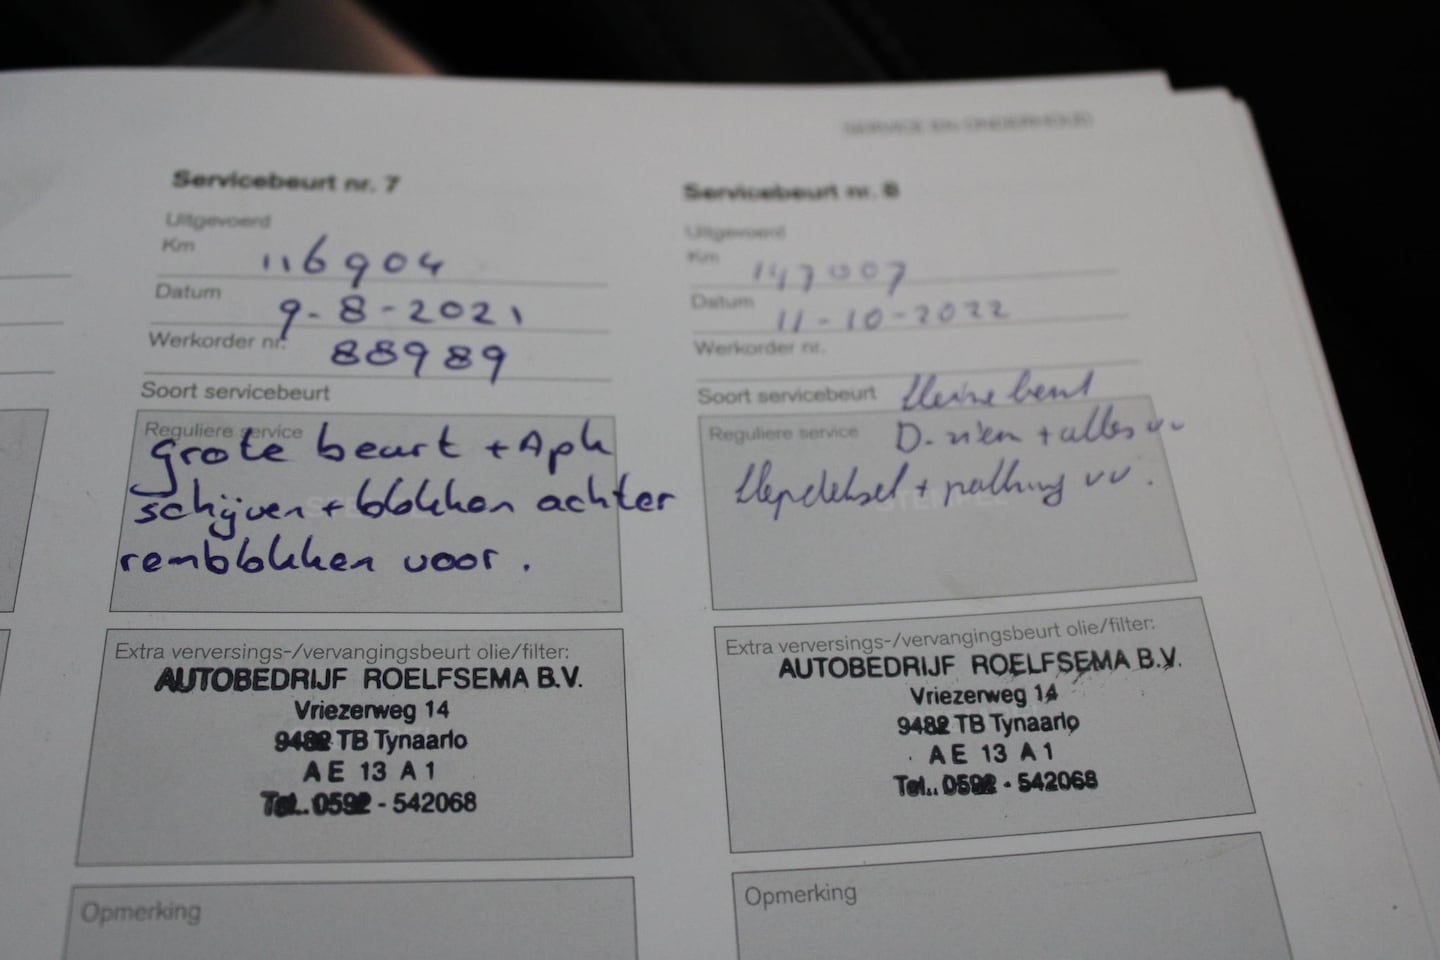 SERVICE EN ONDERHOUD
Servicebeurt nr. 7
Uitgevoerd
Km 116904
Datum 9-8-2021
Werkorder nr. 88989
Soort servicebeurt
Reguliere service
grote beurt + Apk
schijven + blokken achter
remblokken voor.
Extra verversings-/vervangingsbeurt olie/filter:
AUTOBEDRIJF ROELFSEMA B.V.
Vriezerweg 14
9482 TB Tynaarlo
AE 13 A1
Tel.. 0592 - 542068
Opmerking
Servicebeurt nr. 8
Uitgevoerd
Km 147007
Datum 11-10-2022
Werkorder nr.
Soort servicebeurt kleine beurt
Reguliere service D-riem + alles vv
klepdeksel + pakking vv.
Extra verversings-/vervangingsbeurt olie/filter:
AUTOBEDRIJF ROELFSEMA B.V.
Vriezerweg 14
9482 TB Tynaarlo
AE 13 A1
Tel.. 0592 - 542068
Opmerking